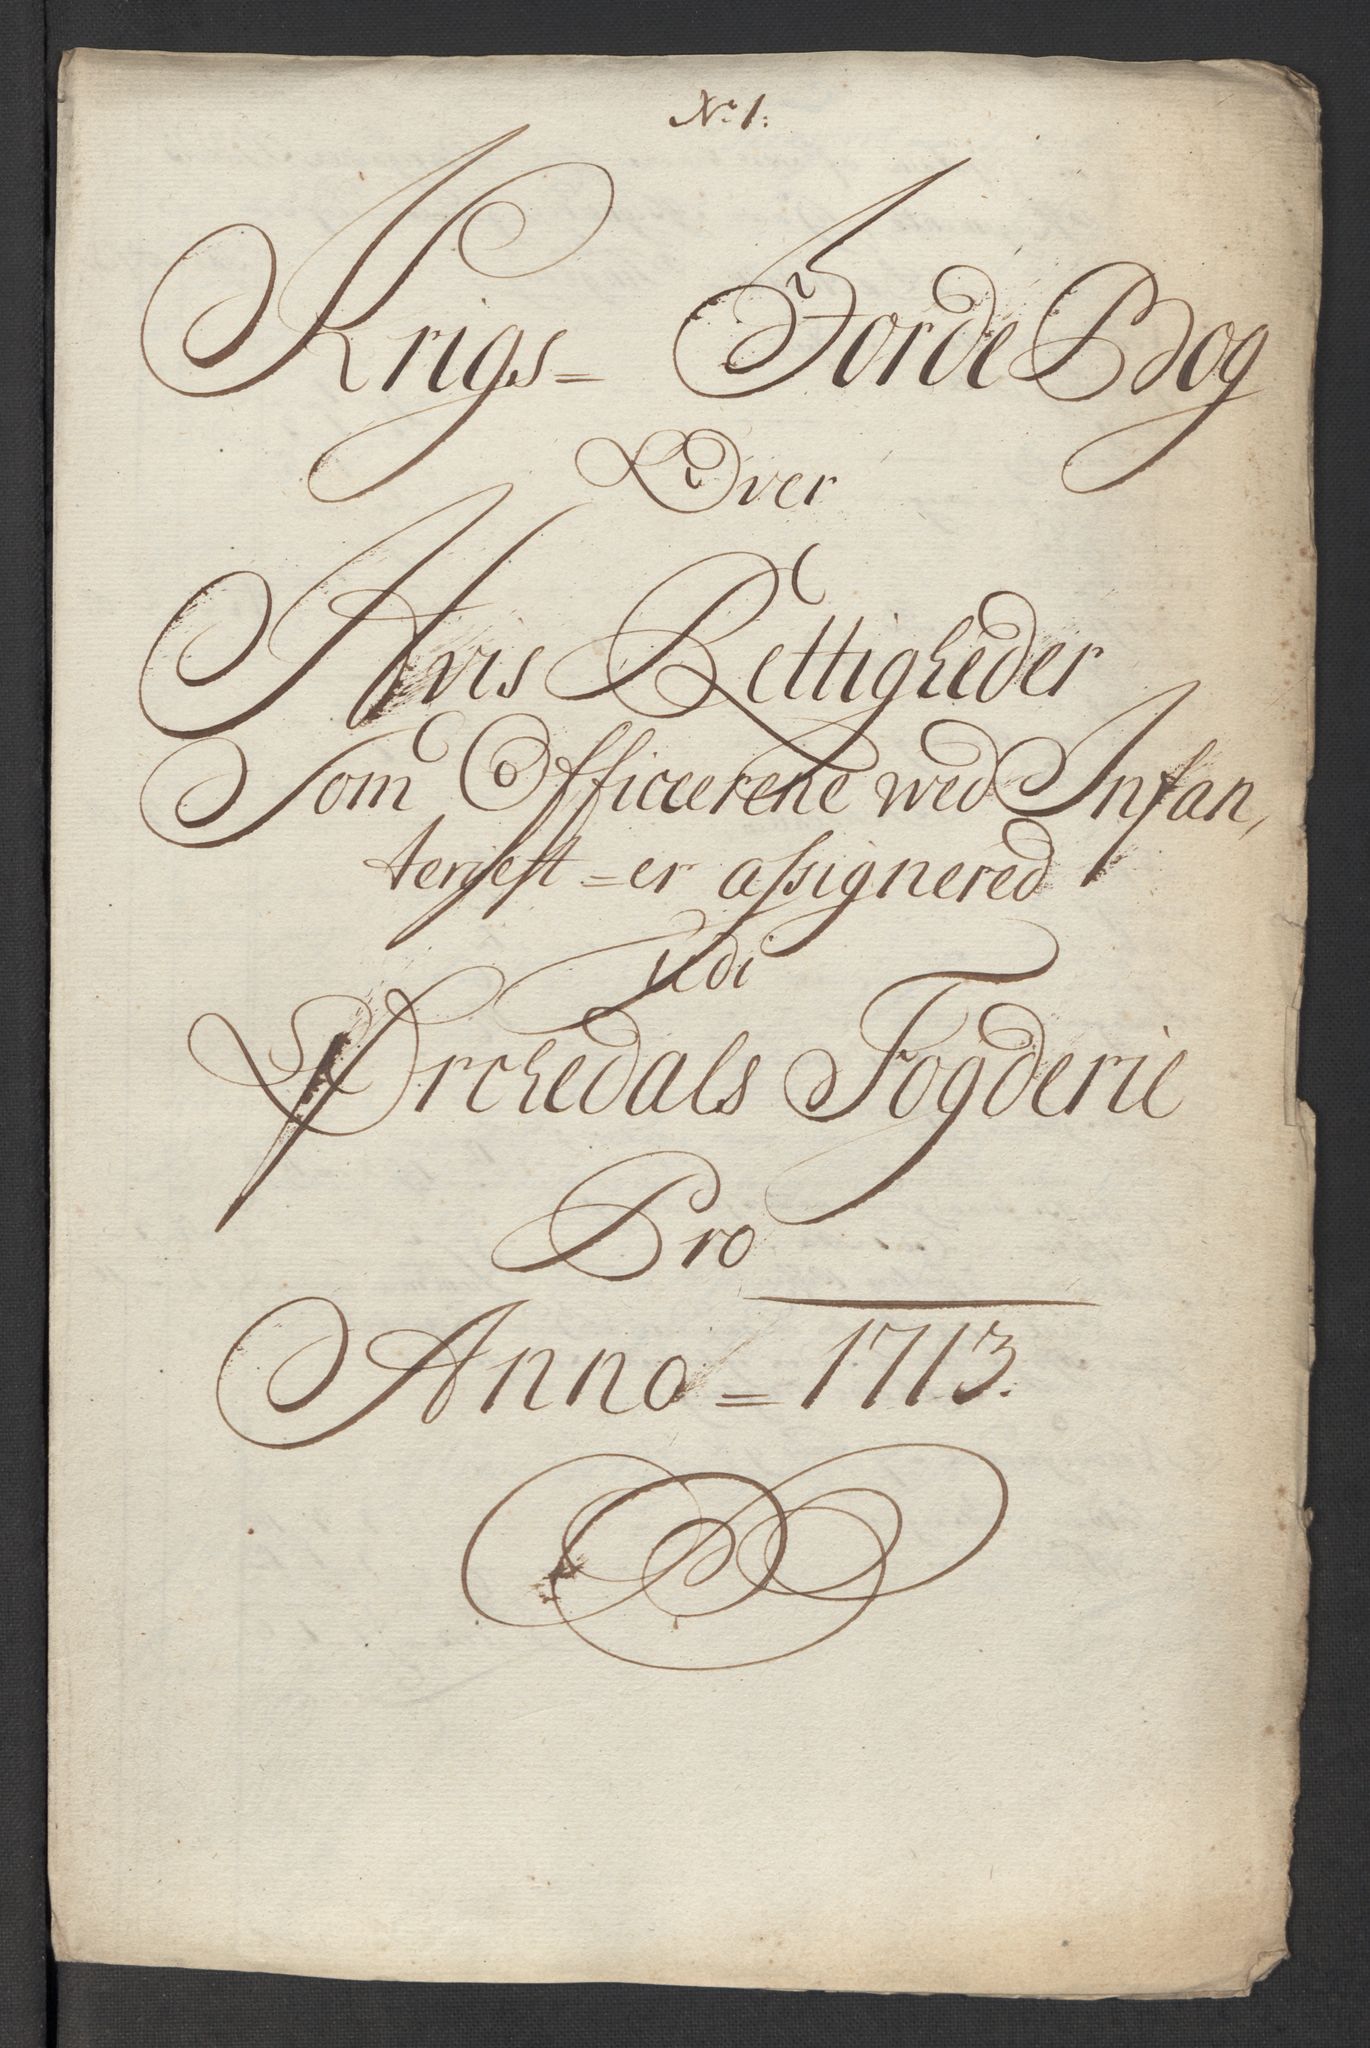 No 1:
Krigs= Jorde Bog
Over
Hvis Rettigheder
Som Officcerene wed Infan,
teriet =er assignered
udi
Orchedals Fogderie
Pro
Anno = 1713.